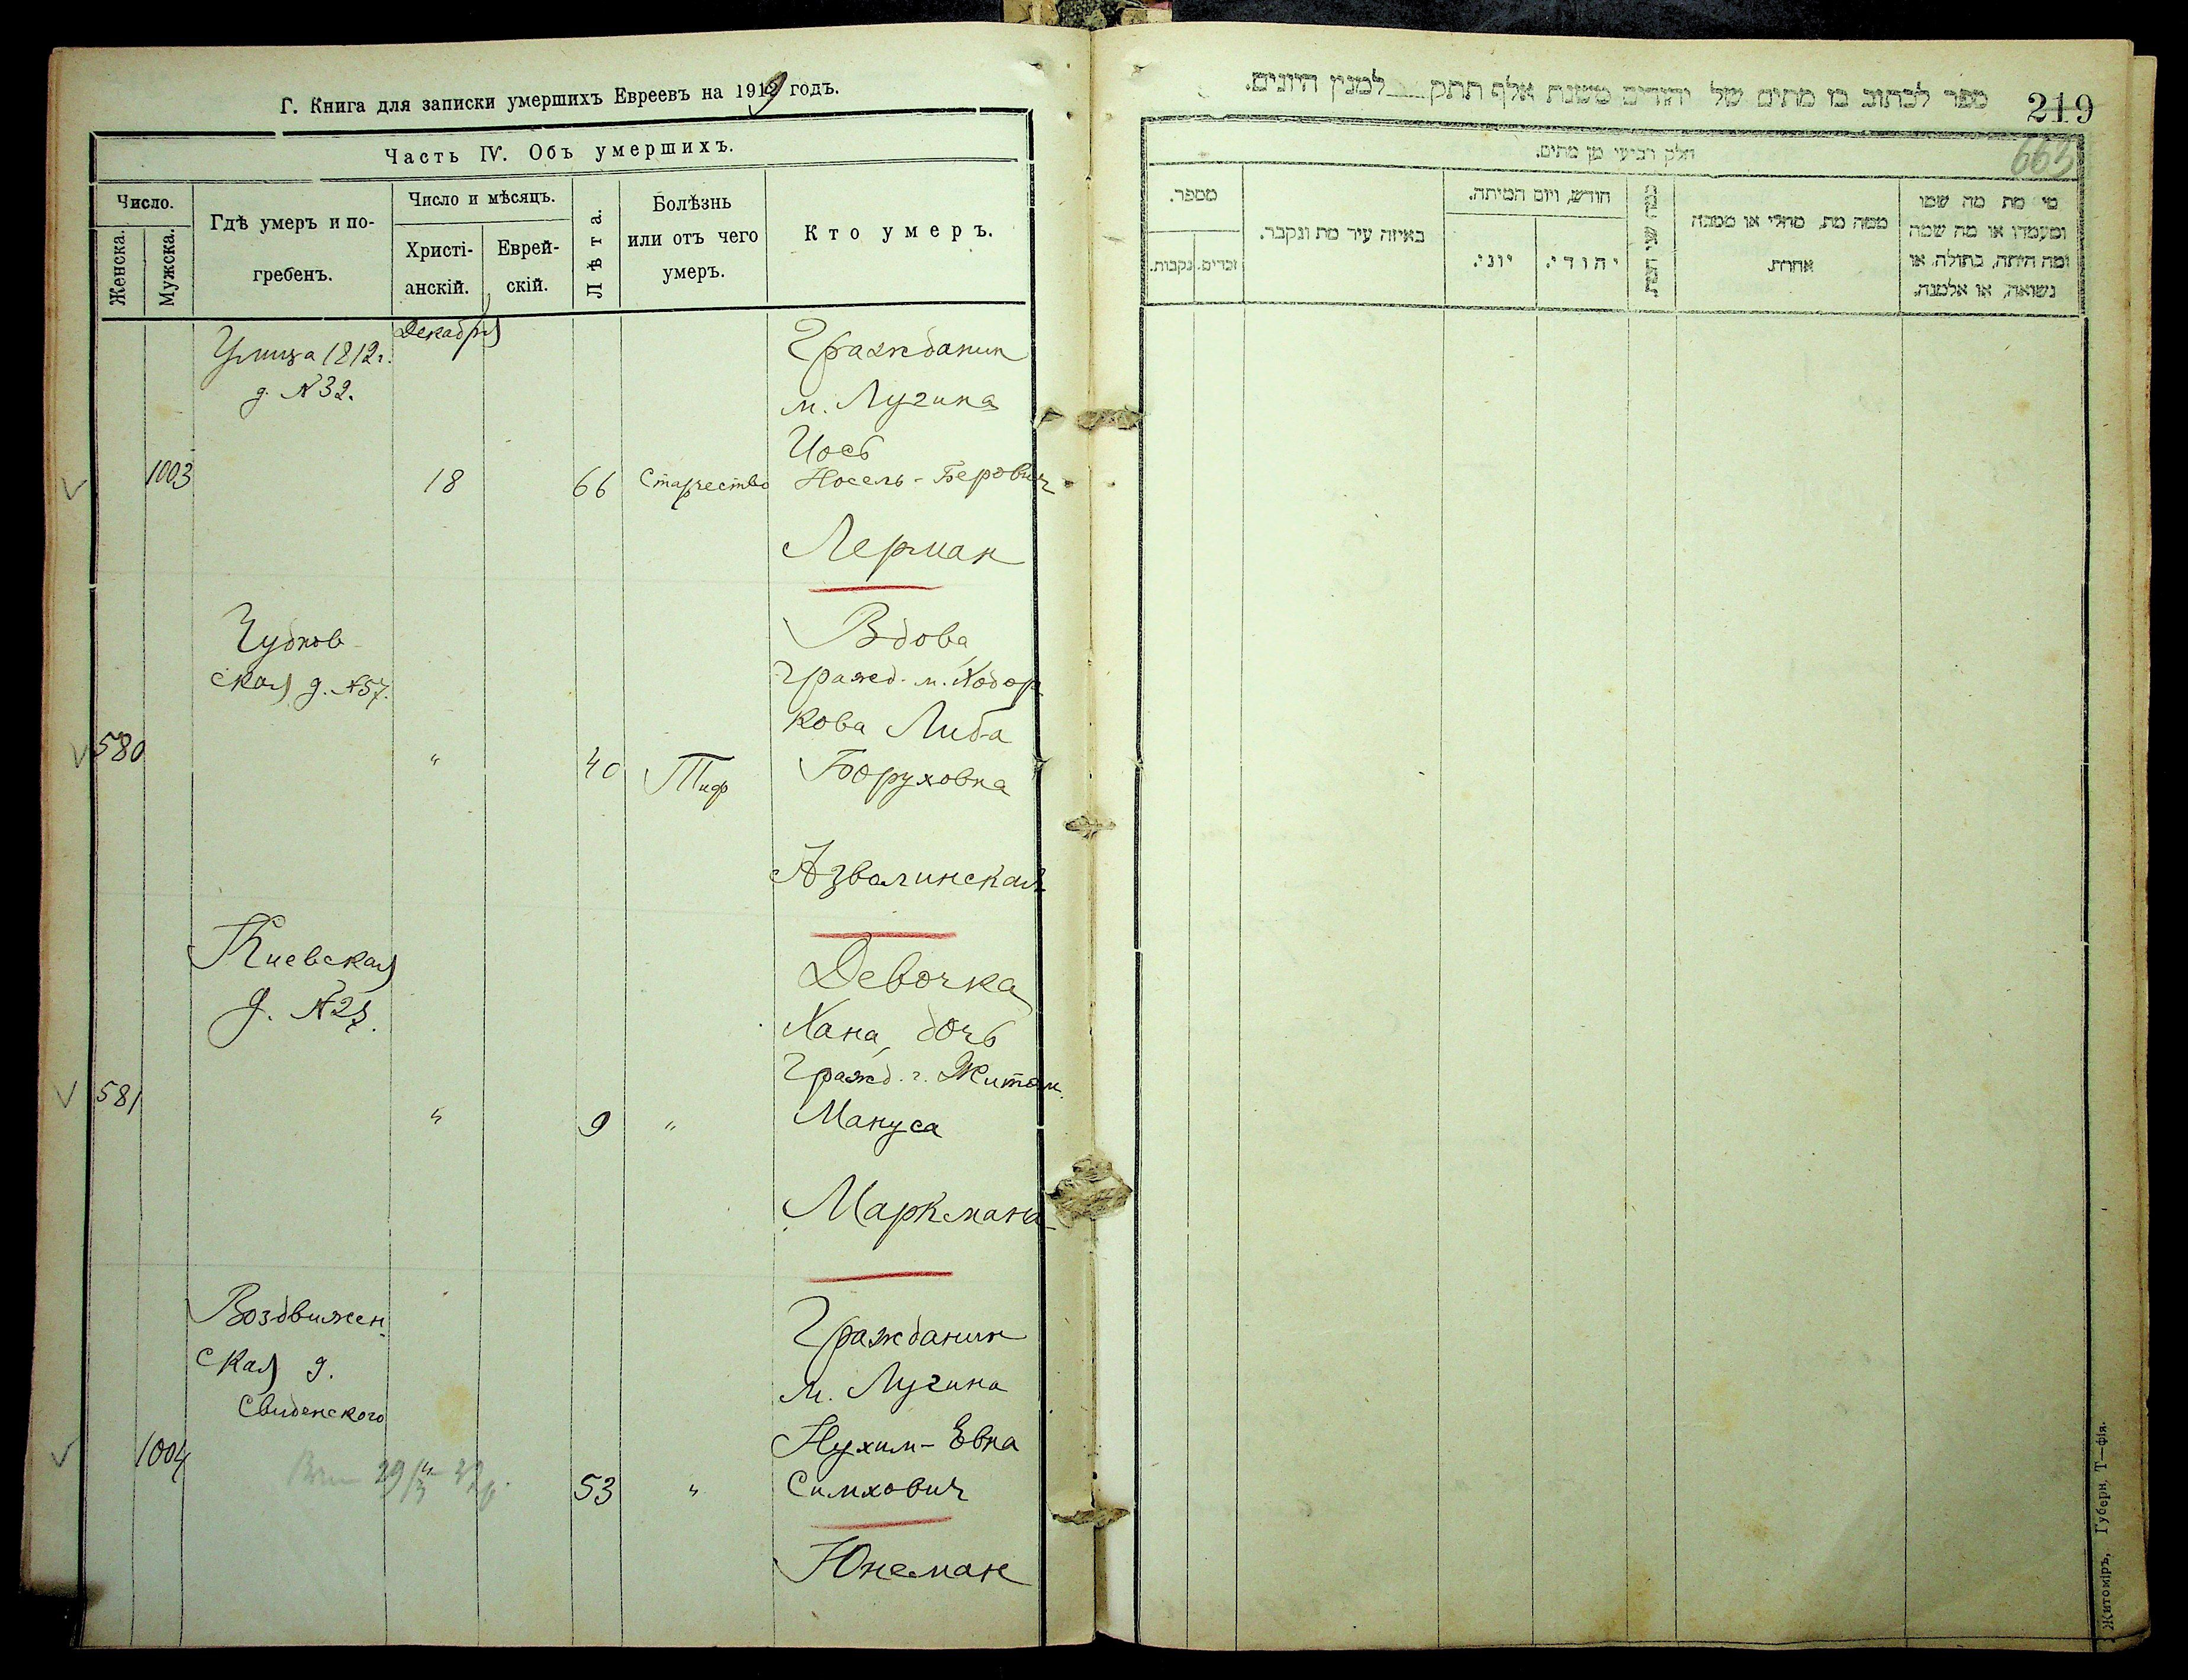 Г. Книга для записки умершихъ Евреевъ на 1919 годъ.
Часть IV. Объ умершихъ.
Число.
Женска.
Мужска.
Гдѣ умеръ и по-
гребенъ.
Число и мѣсяцъ.
Христі-
анскій.
Еврей-
скій.
Лѣта.
Болѣзнь
или отъ чего
умеръ.
Кто умеръ.
Декабря
Улица 1812 г.
д. №32.
Гражданин
м. Лугина
Иось
1003 18 66 Старчество Носель-Берович
Лерман
Чуднов-
ская д. №57.
Вдова
гражд. м. Ходор-
кова Либа
580 " 40 Тиф Боруховна
Азвалинская
Киевская
д. №27.
Девочка
Хана, дочь
гражд. г. Житом.
581 " 9 " Мануса
Маркмана
Воздвижен-
ская д.
Свиденского
Гражданин
м. Лугина
Нухим-Евна
1004 53 " Симхович
Юкелман
ספר לכתוב בו מתים של יהודים משנת אלף תתק למנין היונים.
219
663
חלק רביעי מן מתים.
מספר.
נקבות.
זכרים.
באיזה עיר מת ונקבר.
חודש, ויום המיתה.
יוני.
יהודי.
ממה מת, מחלי או מסבה
אחרת.
מי מת מה שמו
ומעמדו או מה שמה
ומה היתה, בתולה, או
נשואה, או אלמנה.
Житоміръ, Губерн. Т—фія.